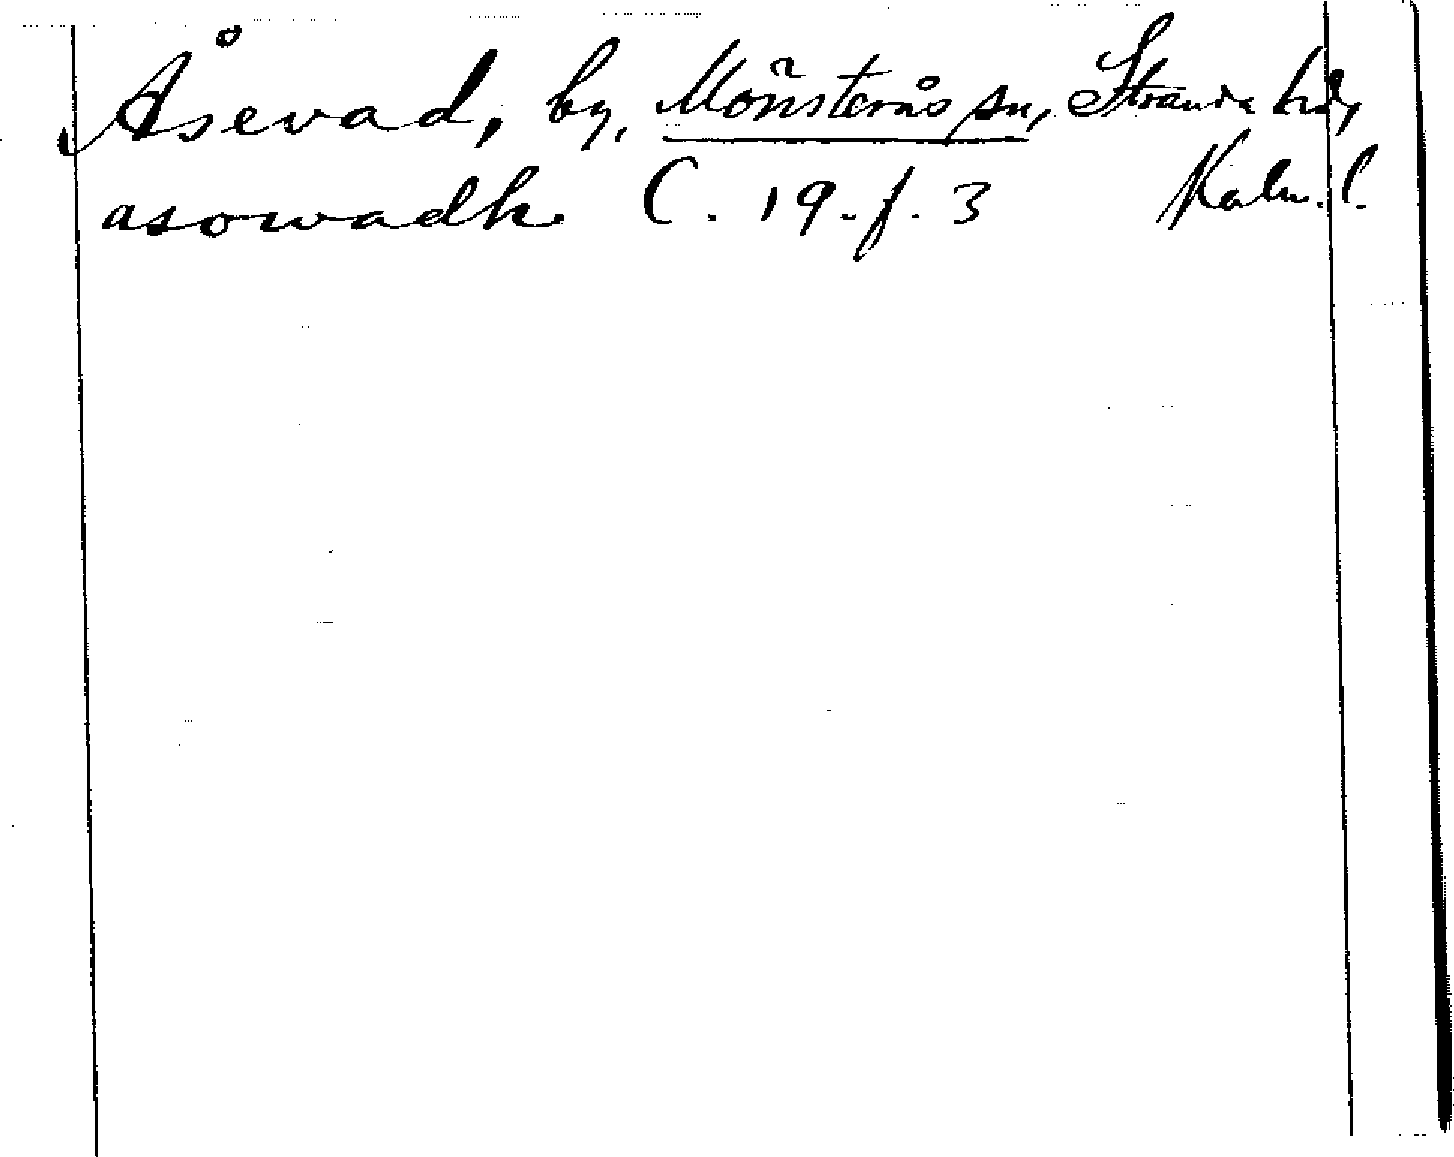 Åsevad, by, Mönsterås sn, Stranda hd,
asowadh C. 19. f. 3 Kalm. l.